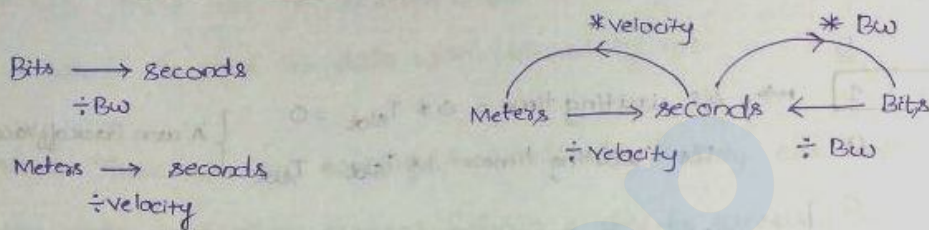 Bits ⟶ seconds
÷Bw
Meters ⟶ seconds
÷velocity
*velocity
* Bw
Meters ⟶ seconds ⟵ Bits
÷ velocity
÷ Bw